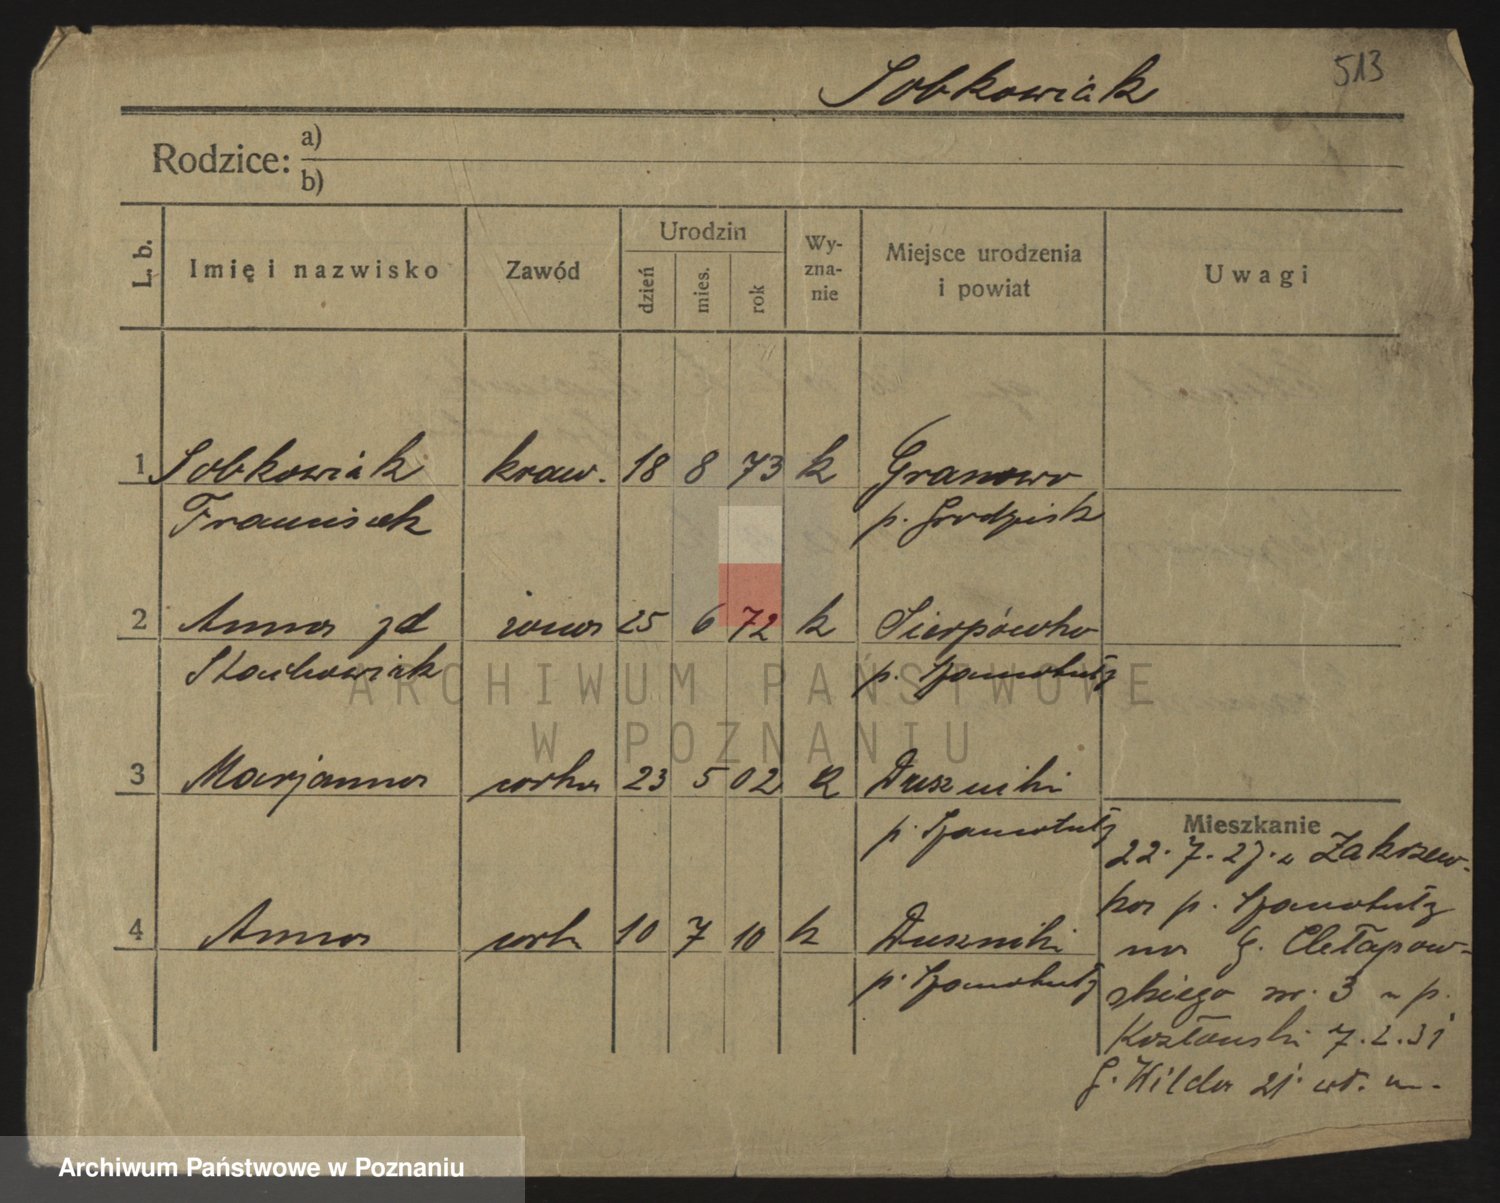 Sobkowiak
513
Rodzice: a)
b)
L. b.
Imię i nazwisko
Zawód
Urodzin
dzień
mies.
rok
Wy-
zna-
nie
Miejsce urodzenia
i powiat
Uwagi
1 Sobkowiak kraw. 18 8 73 k Granowo
Franciszek p. Grodzisk
2 Anna zd żona 25 6 72 k Sierpówko
Stachowiak p. Szamotuły
3 Marjanna córka 23 5 02 k Duszniki
p. Szamotuły
Mieszkanie
22.7.27. z Zakrzew-
ka p. Szamotuły
4 Anna córk 10 7 10 k Duszniki
na G. Chłapow-
p. Szamotuły
skiego nr. 3 p.
Kozłowski 7.2.31
G. Wilda 21. wł. m.
ARCHIWUM PAŃSTWOWE
W POZNANIU
Archiwum Państwowe w Poznaniu